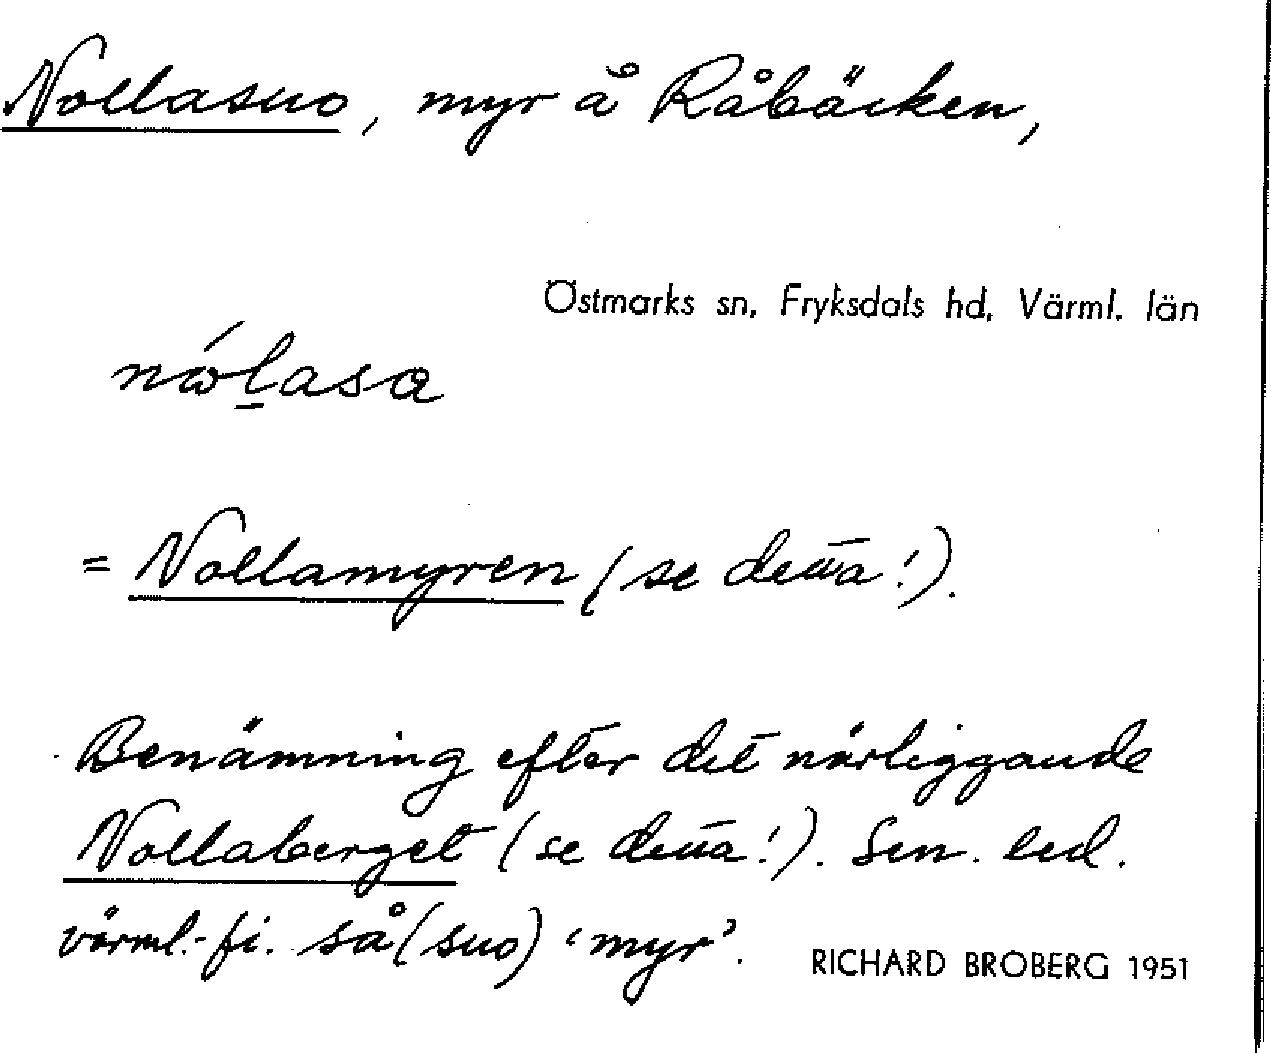 Nollasuo, myr å Råbäcken,
Östmarks sn, Fryksdals hd, Värml. län
nώl̠asa
= Nollamyren (se detta!).
Benämning efter det närliggande
Nollaberget (se detta!). Sen. led.
värml.-fi. så (suo) ‘myr’.
RICHARD BROBERG 1951